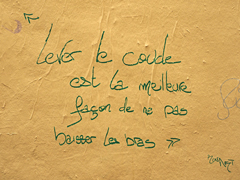 Lever le coude
est la meilleure
façon de ne pas
baisser les bras